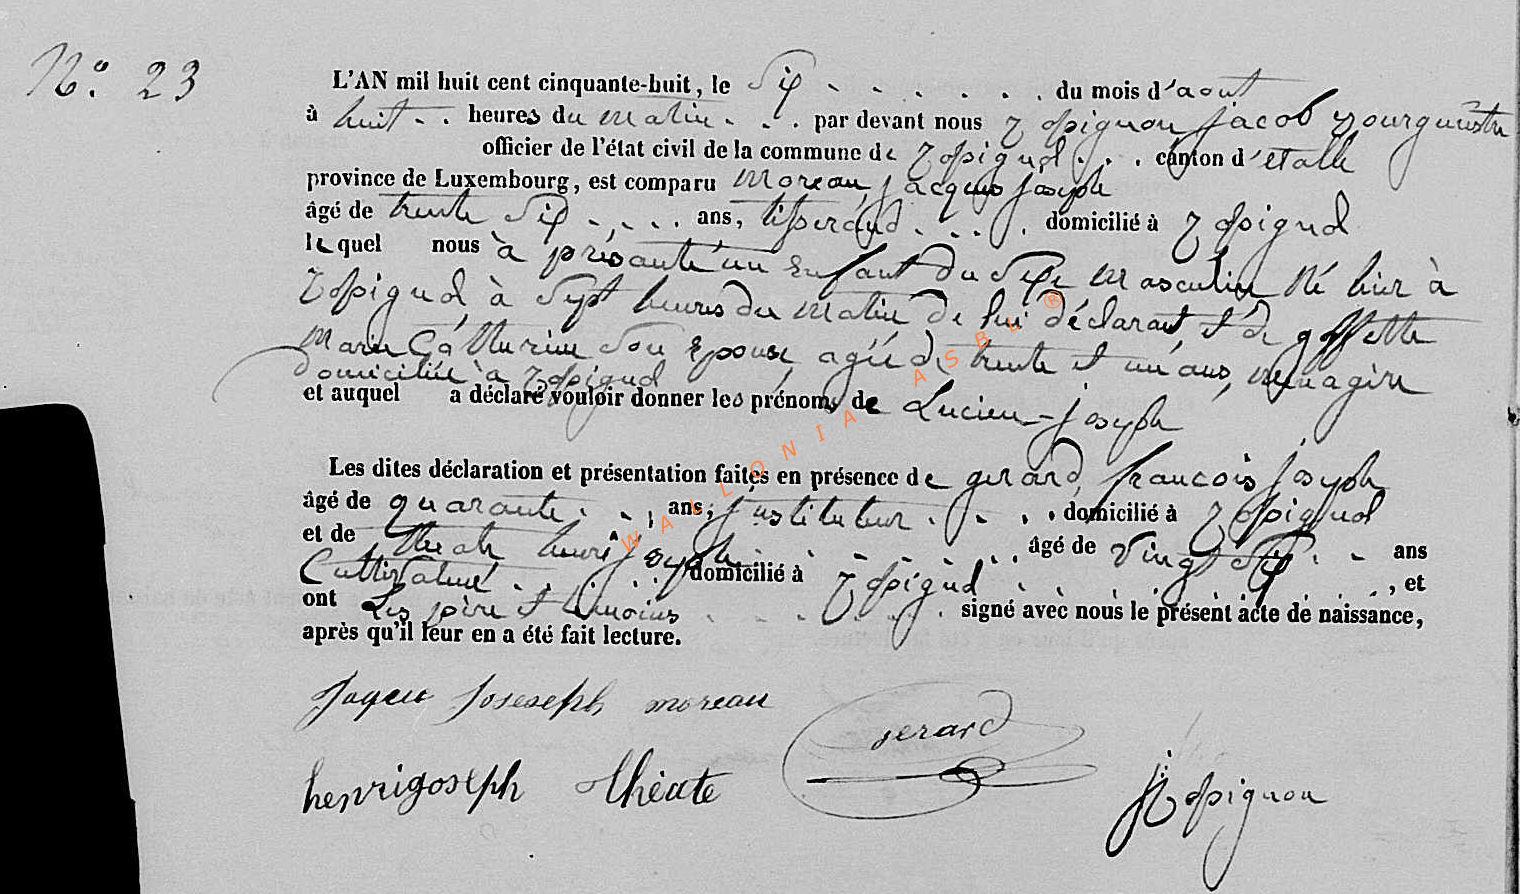 N.º 23
L'AN mil huit cent cinquante-huit, le Six du mois d'aout
à huit heures du matin par devant nous Rossignon Jacob Bourguemestre
officier de l'état civil de la commune de Rossignol canton d'étalle
province de Luxembourg, est comparu Moreau, jacques joseph
âgé de trente Six ans, tisserand domicilié à Rossignol
lequel nous à présanté un Enfant du Sexe Masculin Né hier à
Rossignol, à Sept heures du Matin de lui déclarant, et de goffette
Marie Catherine Son Epouse agée de trente et un ans, menagère
domiciliée à Rossignol
et auquel a déclaré vouloir donner les prénoms de Lucien-joseph
Les dites déclaration et présentation faites en présence de gerard, francois joseph
âgé de quarante ans, justituteur domicilié à Rossignol
et de theate henri joseph âgé de vingt Six ans
Cultivateur domicilié à Rossignol, et
ont Les père et témoins signé avec nous le présent acte de naissance,
après qu'il leur en a été fait lecture.
Jaques Joseseph moreau
gerard
henrigoseph théate
J Rossignon
WALLONIA ASBL ®